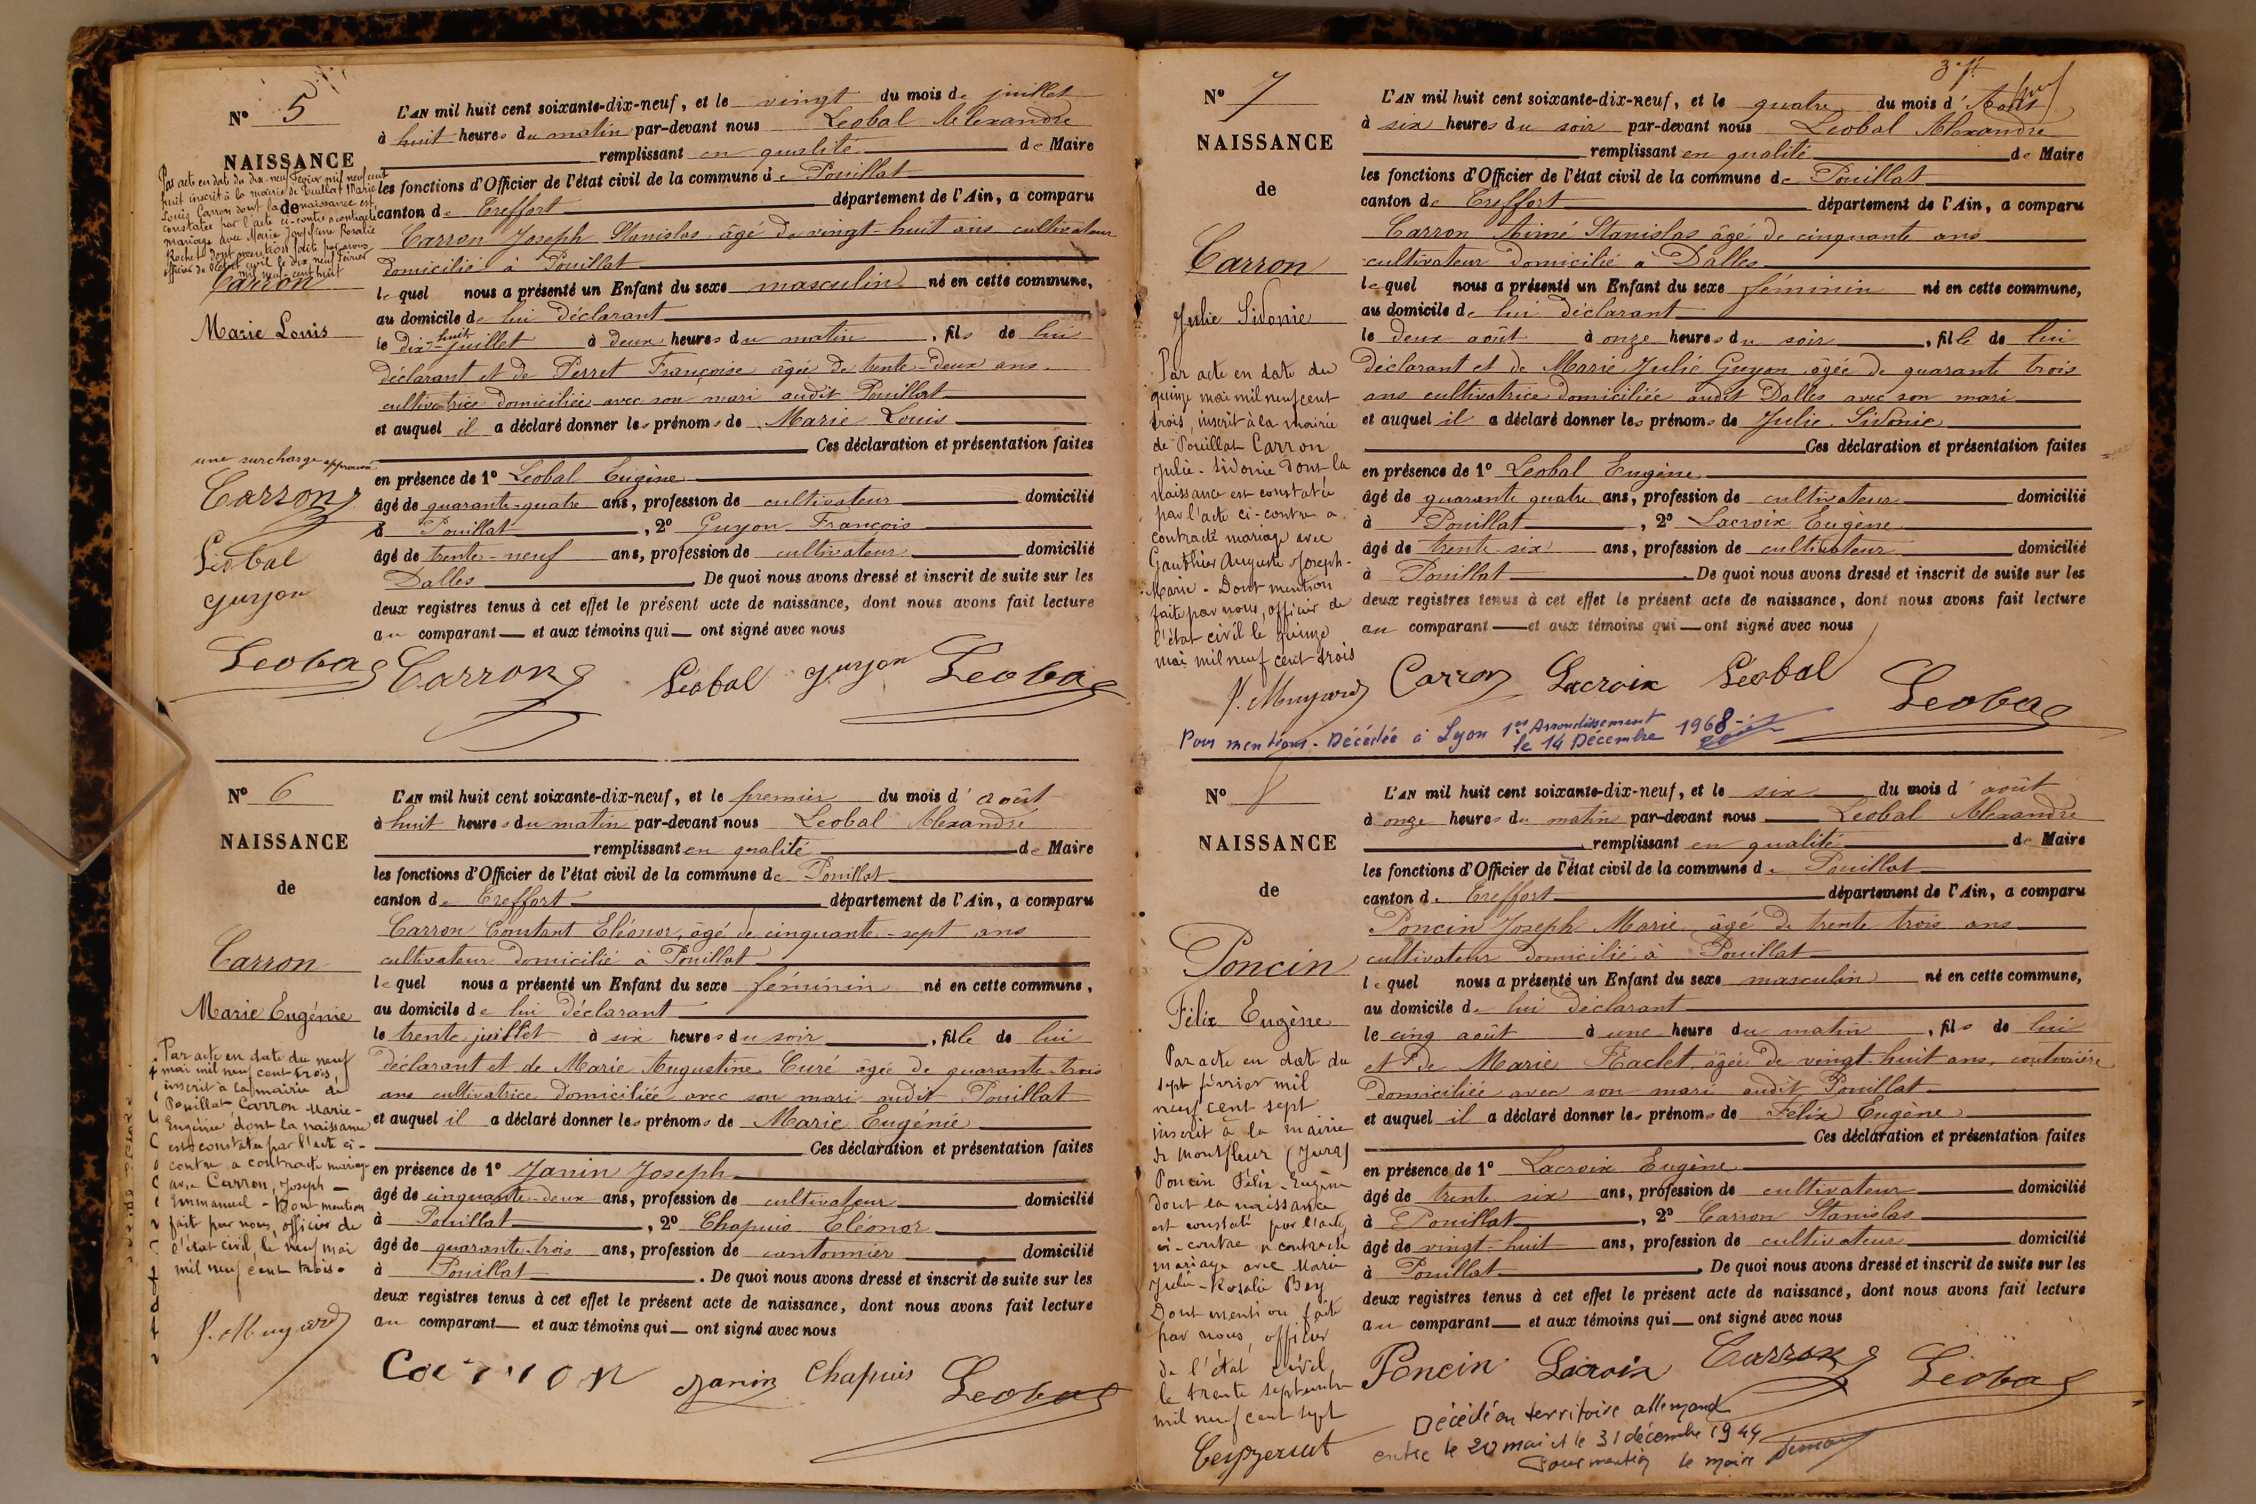 N° 5
L'AN mil huit cent soixante-dix-neuf, et le vingt du mois de juillet
à huit heures du matin par-devant nous Leobal Alexandre
remplissant en qualité de Maire
les fonctions d'Officier de l'état civil de la commune de Pouillat
canton de Treffort département de l'Ain, a comparu
Carron Joseph Stanislas âgé de vingt-huit ans cultivateur
domicilié à Pouillat
lequel nous a présenté un Enfant du sexe masculin né en cette commune,
au domicile de lui déclarant
le dix-huit juillet à deux heures du matin, fils de lui
déclarant et de Perret Françoise âgée de trente-deux ans
cultivatrice domiciliée avec son mari audit Pouillat
et auquel il a déclaré donner les prénoms de Marie Louis
Ces déclaration et présentation faites
en présence de 1° Leobal Eugène
âgé de quarante-quatre ans, profession de cultivateur domicilié
à Pouillat, 2° Guyon François
âgé de trente-neuf ans, profession de cultivateur domicilié
Dalles. De quoi nous avons dressé et inscrit de suite sur les
deux registres tenus à cet effet le présent acte de naissance, dont nous avons fait lecture
au comparant et aux témoins qui ont signé avec nous
NAISSANCE
Par acte en date du dix-neuf Février mil neuf cent
huit inscrit à la mairie de Pouillat Marie
Louis Carron dont la naissance est
de
constatée par l'acte ci-contre a contracté
mariage avec Marie Joséphine Rosalie
Rochet dont mention faite par nous
officier de l'état civil le dix neuf Février
mil neuf-cent huit
Carron
Marie Louis
une surcharge approuvée
Carron
Léobal
guyon
Leobal Carron Léobal guyon Leobal
N° 6
NAISSANCE
de
Carron
Marie Eugénie
L'AN mil huit cent soixante-dix-neuf, et le premier du mois d'août
à huit heures du matin par-devant nous Leobal Alexandre
remplissant en qualité de Maire
les fonctions d'Officier de l'état civil de la commune de Pouillat
canton de Treffort département de l'Ain, a comparu
Carron Constant Eléonor, âgé de cinquante-sept ans
cultivateur domicilié à Pouillat
lequel nous a présenté un Enfant du sexe féminin né en cette commune,
au domicile de lui déclarant
le trente juillet à six heures du soir, fille de lui
déclarant et de Marie Augustine Curé âgée de quarante-trois
ans cultivatrice domiciliée avec son mari audit Pouillat
et auquel il a déclaré donner les prénoms de Marie Eugénie
Ces déclaration et présentation faites
en présence de 1° Janin Joseph
âgé de cinquante-deux ans, profession de cultivateur domicilié
à Pouillat, 2° Chapuis Eléonor
âgé de quarante-trois ans, profession de cantonnier domicilié
à Pouillat. De quoi nous avons dressé et inscrit de suite sur les
deux registres tenus à cet effet le présent acte de naissance, dont nous avons fait lecture
au comparant et aux témoins qui ont signé avec nous
Par acte en date du neuf
mai mil neuf cent trois,
inscrit à la mairie de
Pouillat Carron Marie-
Eugénie dont la naissance
est constatée par l'acte ci-
contre a contracté mariage
avec Carron, Joseph-
Emmanuel - Dont mention
fait par nous, officier de
l'état civil, le neuf mai
mil neuf cent trois.
Carron Janin Chapuis Leobal
N° 7
NAISSANCE
de
Carron
Julie Sidonie
L'AN mil huit cent soixante-dix-neuf, et le quatre du mois d'Août
à six heures du soir par-devant nous Leobal Alexandre
remplissant en qualité de Maire
les fonctions d'Officier de l'état civil de la commune de Pouillat
canton de Treffort département de l'Ain, a comparu
Carron Aimé Stanislas âgé de cinquante ans
cultivateur domicilié à Dalles
lequel nous a présenté un Enfant du sexe féminin né en cette commune,
au domicile de lui déclarant
le deux août à onze heures du soir, fille de lui
déclarant et de Marie Julie Guyon âgée de quarante trois
ans cultivatrice domiciliée audit Dalles avec son mari
et auquel il a déclaré donner les prénoms de Julie Sidonie
Ces déclaration et présentation faites
en présence de 1° Leobal Eugène
âgé de quarante quatre ans, profession de cultivateur domicilié
à Pouillat, 2° Lacroix Eugène
âgé de trente-six ans, profession de cultivateur domicilié
à Pouillat. De quoi nous avons dressé et inscrit de suite sur les
deux registres tenus à cet effet le présent acte de naissance, dont nous avons fait lecture
au comparant et aux témoins qui ont signé avec nous
Par acte en date du
quinze mai mil neuf cent
trois, inscrit à la mairie
de Pouillat Carron
Julie-Sidonie dont la
naissance est constatée
par l'acte ci-contre a
contracté mariage avec
Gauthier Auguste Joseph-
Marie - Dont mention
faite par nous, officier de
l'état civil le quinze
mai mil neuf cent trois
Carron Lacroix Léobal Leobal
Pour mention. Décédée à Lyon 1er Arrondissement
le 14 Décembre 1968
N° 8
NAISSANCE
de
Poncin
Félix Eugène
L'AN mil huit cent soixante-dix-neuf, et le six du mois d'août
à onze heures du matin par-devant nous Leobal Alexandre
remplissant en qualité de Maire
les fonctions d'Officier de l'état civil de la commune de Pouillat
canton de Treffort département de l'Ain, a comparu
Poncin Joseph Marie âgé de trente trois ans
cultivateur domicilié à Pouillat
lequel nous a présenté un Enfant du sexe masculin né en cette commune,
au domicile de lui déclarant
le cinq août à une heure du matin, fils de lui
et de Marie Raclet âgée de vingt-huit ans, couturière
domiciliée avec son mari audit Pouillat
et auquel il a déclaré donner les prénoms de Felix Eugène
Ces déclaration et présentation faites
en présence de 1° Lacroix Eugène
âgé de trente six ans, profession de cultivateur domicilié
à Pouillat, 2° Carron Stanislas
âgé de vingt-huit ans, profession de cultivateur domicilié
à Pouillat. De quoi nous avons dressé et inscrit de suite sur les
deux registres tenus à cet effet le présent acte de naissance, dont nous avons fait lecture
au comparant et aux témoins qui ont signé avec nous
Par acte en date du
sept février mil
neuf cent sept
inscrit à la mairie
de Montfleur (Jura)
Poncin Félix-Eugène
dont la naissance
est constaté par l'acte
ci-contre a contracté
mariage avec Marie
Julie-Rosalie Bey
Dont mention faite
par nous, officier
de l'état civil
le trente septembre
mil neuf cent sept
Poncin Lacroix Carron Léobal
Décédé en territoire allemand
entre le 20 mai et le 31 décembre 1944
Pour mention le maire